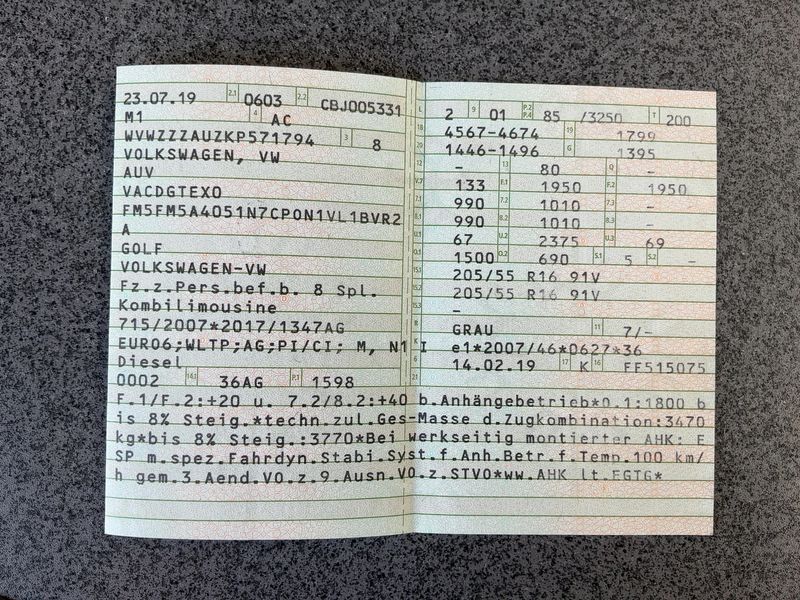 23.07.19 2.1 0603 2.2 CBJ005331
M1 4 AC
WVWZZZAUZKP571794 3 8
VOLKSWAGEN, VW
AUV
VACDGTEX0
FM5FM5A4051N7CP0N1VL1BVR2
A
GOLF
VOLKSWAGEN-VW
Fz.z.Pers.bef.b. 8 Spl.
Kombilimousine
715/2007*2017/1347AG
EURO6;WLTP;AG;PI/CI; M, N1 I
Diesel
0002 14.1 36AG P.1 1598
L 2 9 01 P.2 P.4 85 /3250 T 200
18 4567-4674 19 1799
20 1446-1496 G 1395
12 - 13 80 Q -
V.7 133 F.1 1950 F.2 1950
7.1 990 7.2 1010 7.3 -
8.1 990 8.2 1010 8.3 -
U.1 67 U.2 2375 U.3 69
O.1 1500 O.2 690 S.1 5 S.2 -
15.1 205/55 R16 91V
15.2 205/55 R16 91V
15.3 -
R GRAU 11 7/-
K e1*2007/46*0627*36
6 14.02.19 17 K 16 FF515075
21
F.1/F.2:+20 u. 7.2/8.2:+40 b.Anhängebetrieb*O.1:1800 b
is 8% Steig.*techn.zul.Ges-Masse d.Zugkombination:3470
kg*bis 8% Steig.:3770*Bei werkseitig montierter AHK: E
SP m.spez.Fahrdyn.Stabi.Syst.f.Anh.Betr.f.Temp.100 km/
h gem.3.Aend.VO.z.9.Ausn.VO.z.STVO*ww.AHK lt.EGTG*